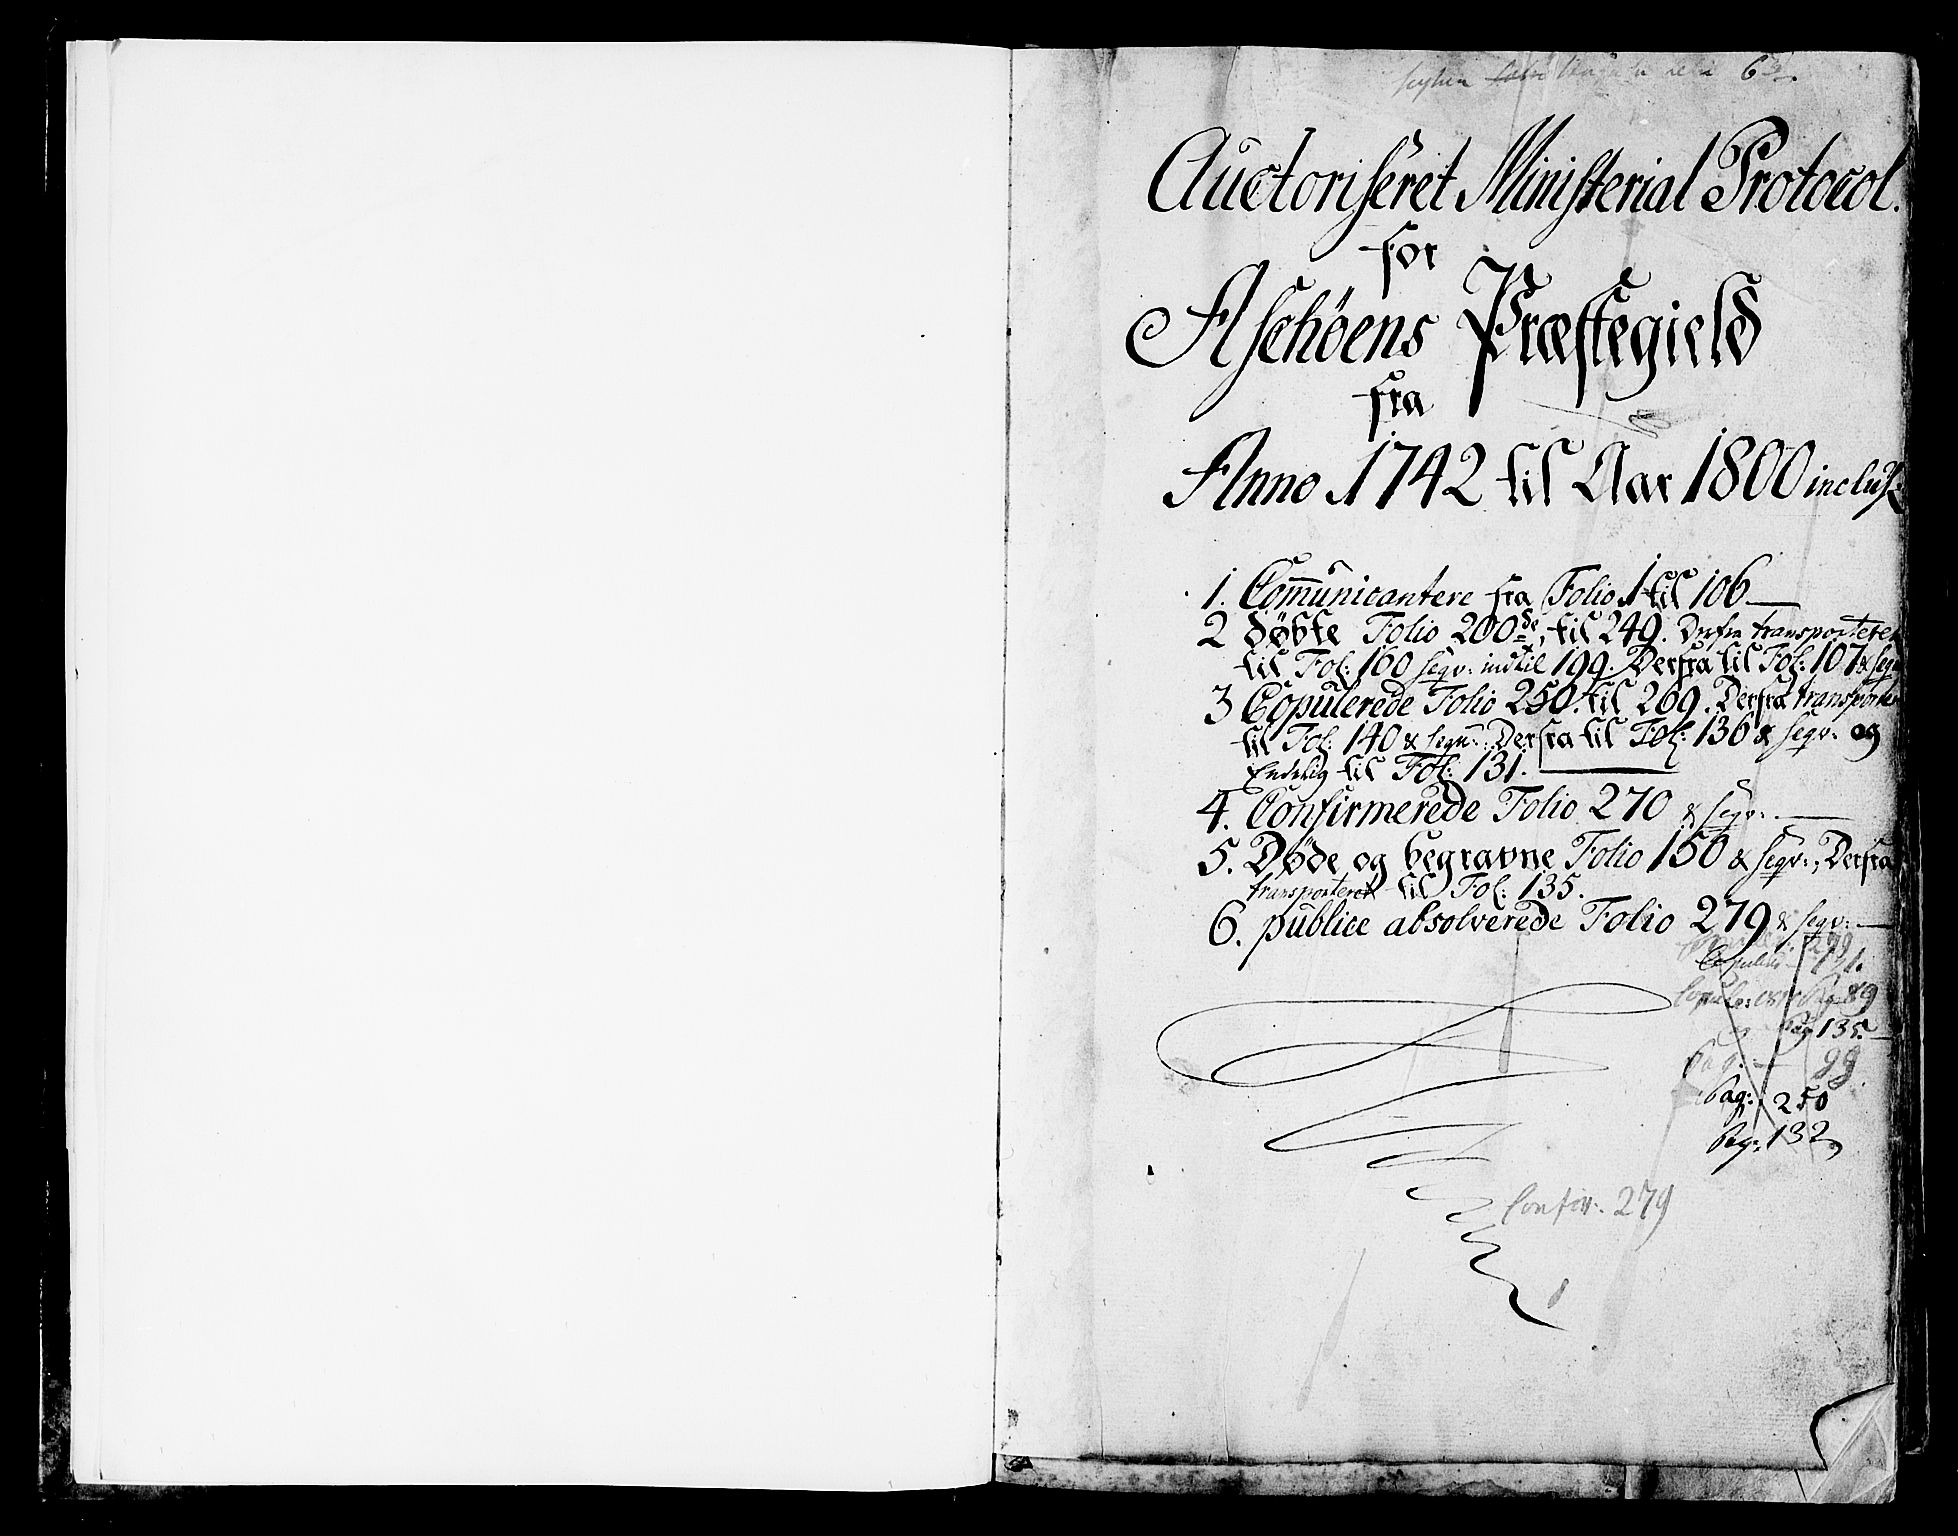 6
Auctoriseret Ministerial Protocol.
for
Aschøens Præstegield
fra
Anno 1742 til Aar 1800 inclus:
1. Com̅unicantere fra Folio 1 til 106 —
2 døbte Folio 200de, til 249. Derfra transporteret
til Fol: 160 seqv: indtil 199. Derfra til Fol: 107 & seqv
3 Copulerede Folio 250. til 269. Derfra transporte
til Fol: 140 & seqv: Derfra til Fol: 136 & seqv: og
Endelig til Fol: 131.
4. Confirmerede Folio 270 & seqv: —
5. Døde og begravne Folio 150 & seqv:, Derfra
transporteret til Fol: 135.
6. publice absolverede Folio 279 & seqv: —
279
Copulerede 131.
Copule: 89
og Pag 135. —
Pag: — 99
Pag: 250
Pag: 132
Confir: 279